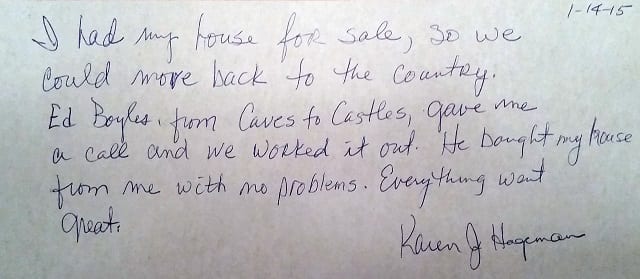 1-14-15
I had my house for sale, so we
could move back to the country.
Ed Boyles, from Caves to Castles, gave me
a call and we worked it out. He bought my house
from me with no problems. Everything went
great.
Karen J Hageman